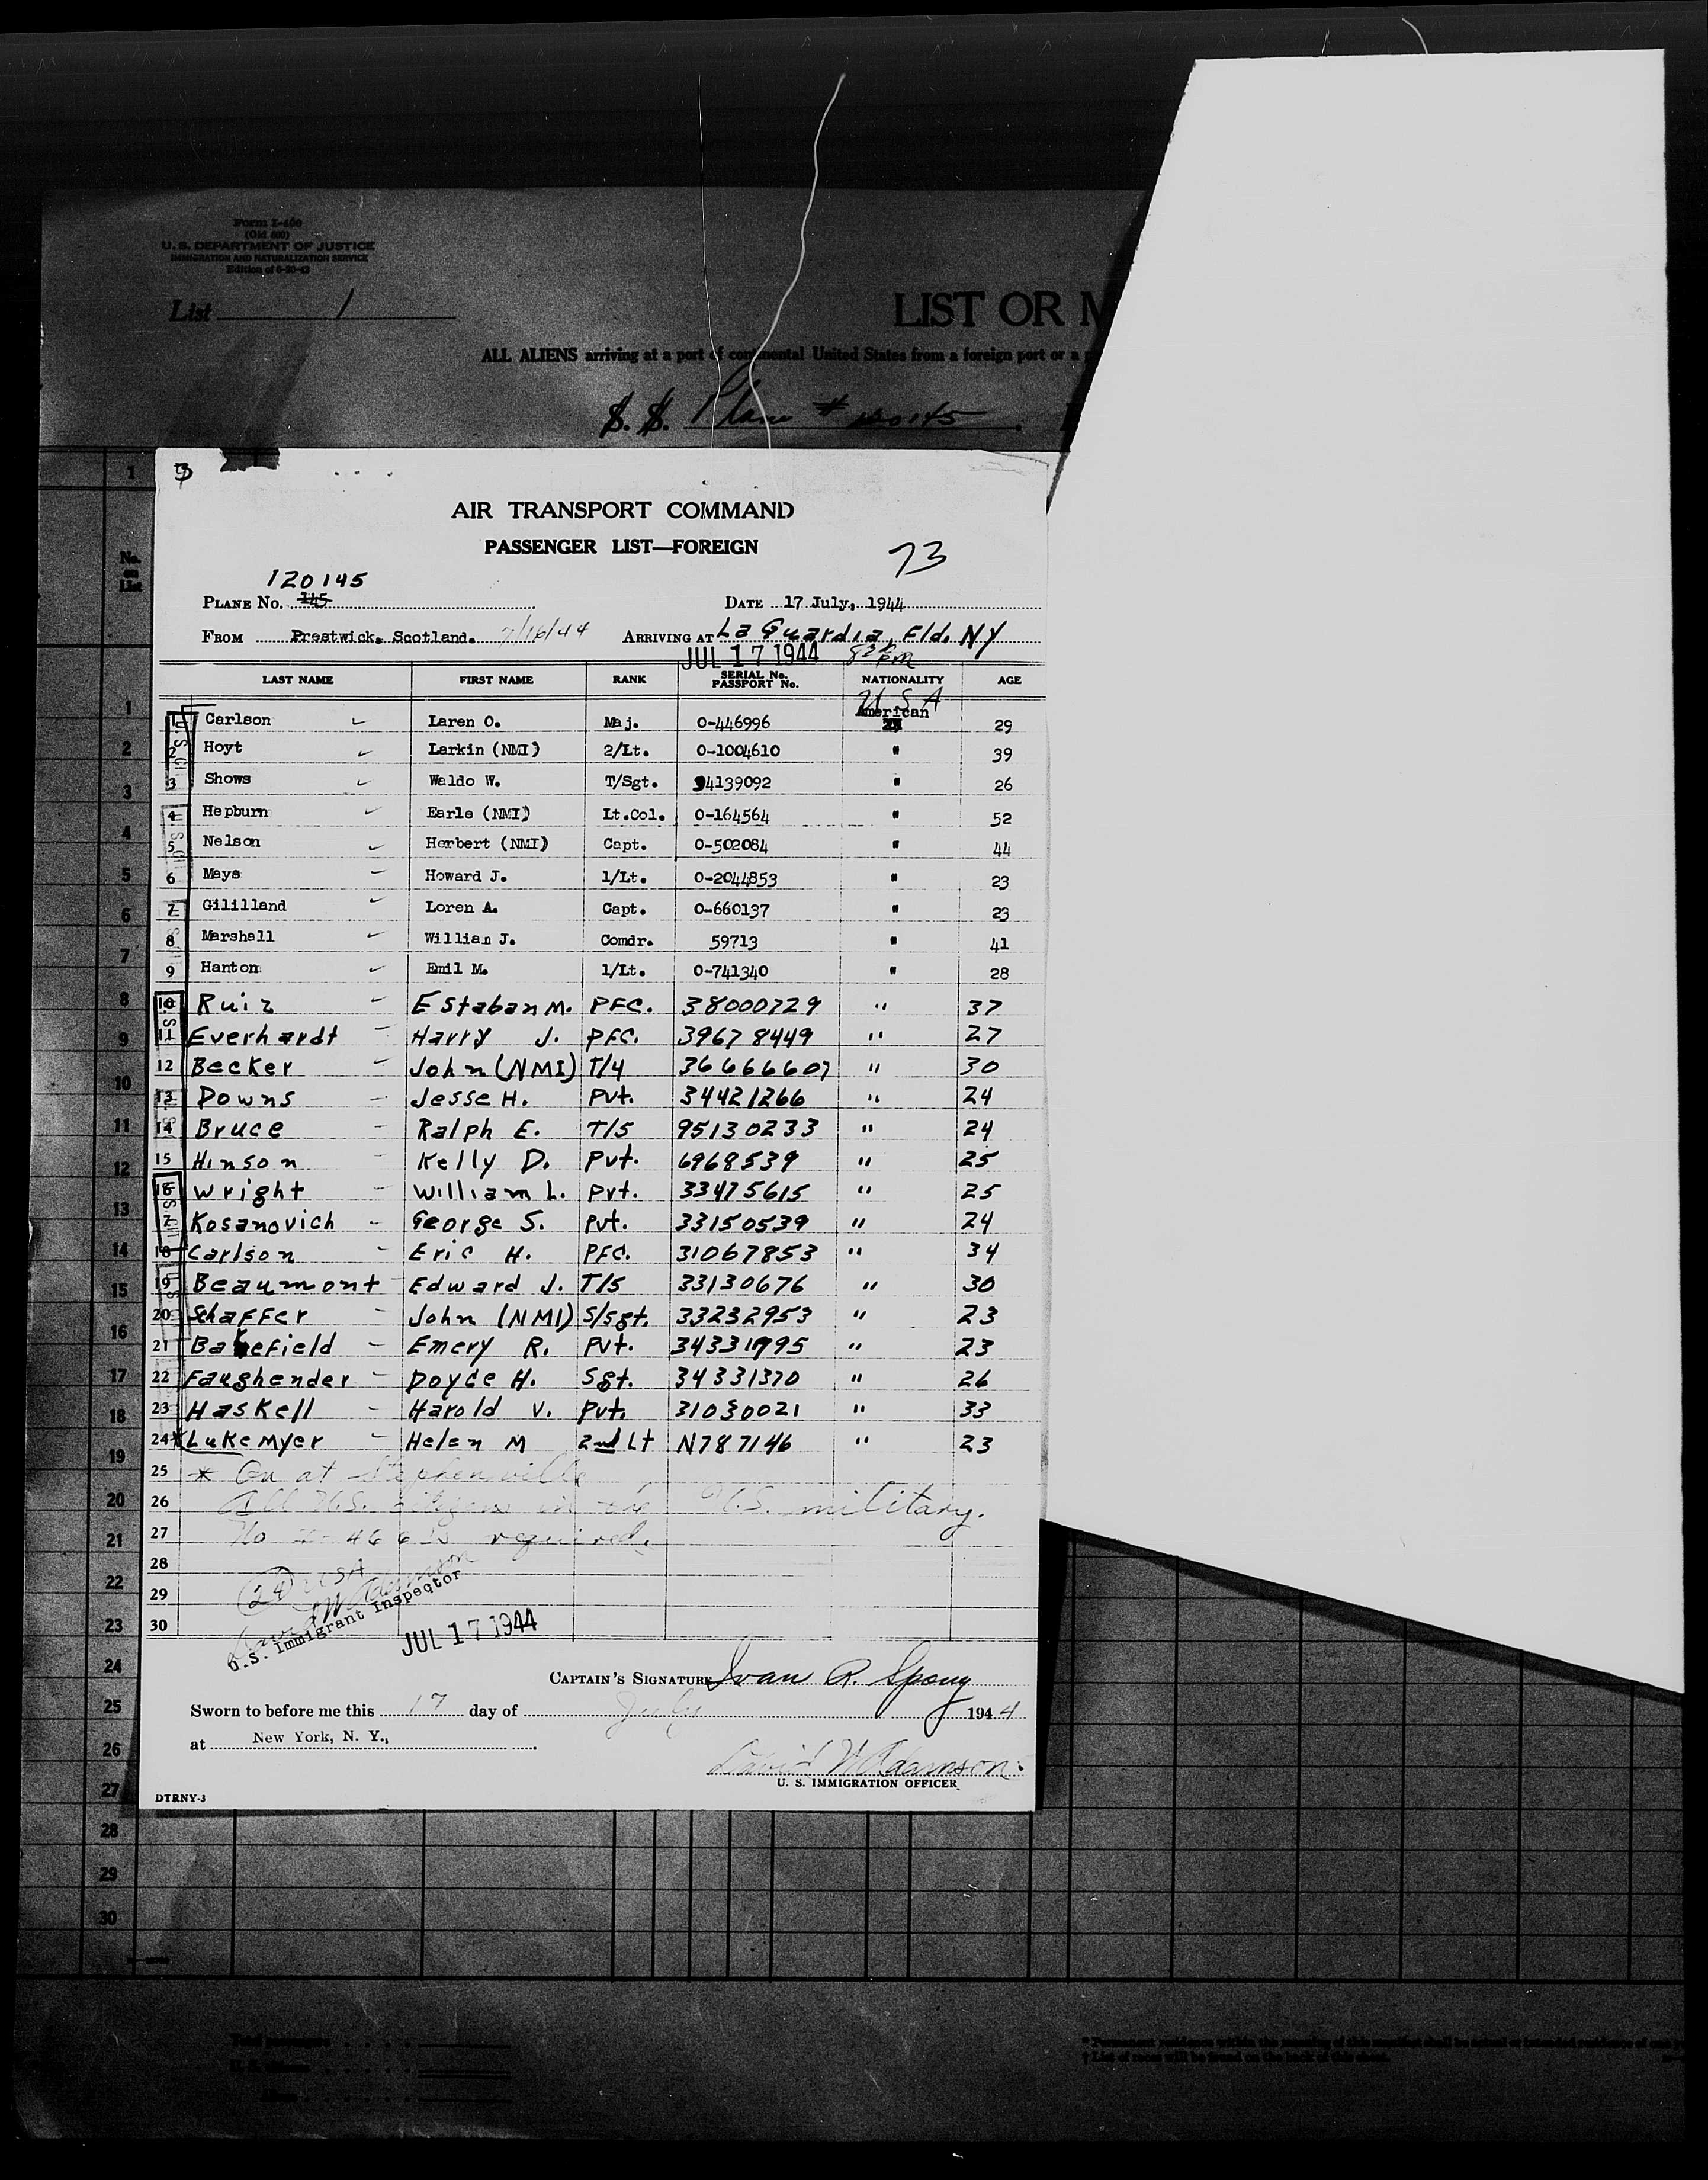 Form I-400
(Old 600)
U. S. DEPARTMENT OF JUSTICE
IMMIGRATION AND NATURALIZATION SERVICE
List 1
LIST OR M
ALL ALIENS arriving at a port of continental United States from a foreign port or a p
S. S. Plane # 120145
AIR TRANSPORT COMMAND
PASSENGER LIST—FOREIGN
73
120145
PLANE NO. 145 DATE 17 July, 1944
FROM Prestwick, Scotland. 7/16/44 ARRIVING AT La Guardia, Fld. NY
JUL 17 1944
LAST NAME FIRST NAME RANK SERIAL No. PASSPORT No. NATIONALITY AGE
U S A
1 Carlson Laren O. Maj. O-446996 American 29
2 Hoyt Larkin (NMI) 2/Lt. O-1004610 " 39
3 Shows Waldo W. T/Sgt. 34139092 " 26
4 Hepburn Earle (NMI) Lt.Col. O-164564 " 52
5 Nelson Herbert (NMI) Capt. O-502084 " 44
6 Mays Howard J. 1/Lt. O-2044853 " 23
7 Gililland Loren A. Capt. O-660137 " 23
8 Marshall Willian J. Comdr. 59713 " 41
9 Hanton Emil M. 1/Lt. O-741340 " 28
10 Ruiz Estaban M. PFC. 38000729 " 37
11 Everhardt Harry J. PFC. 39678449 " 27
12 Becker John (NMI) T/4 36666607 " 30
13 Downs Jesse H. Pvt. 34421266 " 24
14 Bruce Ralph E. T/5 95130233 " 24
15 Hinson Kelly D. Pvt. 6968539 " 25
16 Wright William L. Pvt. 33475615 " 25
17 Kosanovich George S. Pvt. 33150539 " 24
18 Carlson Eric H. PFC. 31067853 " 34
19 Beaumont Edward J. T/5 33130676 " 30
20 Schaffer John (NMI) S/Sgt. 33232953 " 23
21 Bakefield Emery R. Pvt. 34331995 " 23
22 Faughender Doyce H. Sgt. 34331370 " 26
23 Haskell Harold V. Pvt. 31030021 " 33
24 * Lukemyer Helen M 2nd Lt N787146 " 23
25 * On at Stephenville
26 All U.S. citizens in the U.S. military.
27 No I-466 is required.
28
29 (24) USA
30
U.S. Immigrant Inspector
JUL 17 1944
CAPTAIN'S SIGNATURE Ivan R. Spong
Sworn to before me this 17 day of July 1944
at New York, N. Y.,
David W Adamson
U. S. IMMIGRATION OFFICER
DTRNY-3